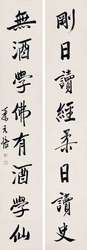 剛日讀經柔日讀史
無酒學佛有酒學仙